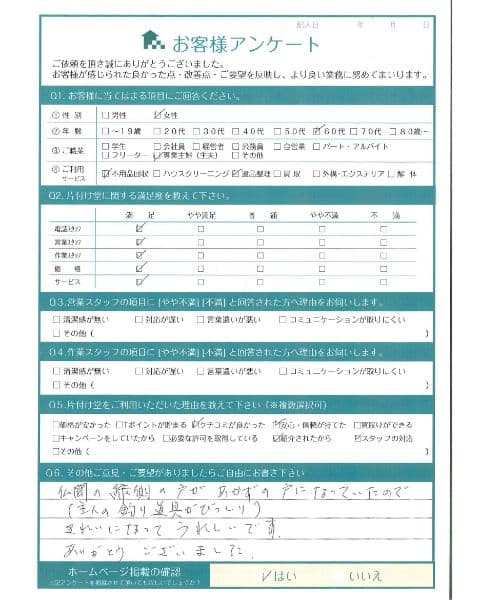 記入日　　年　　月　　日
お客様アンケート
ご依頼を頂き誠にありがとうございました。
お客様が感じられた良かった点・改善点・ご要望を反映し、より良い業務に努めてまいります。
Q1. お客様に当てはまる項目にご回答ください。
①性 別　□男性　☑女性
②年 齢　□～19歳　□20代　□30代　□40代　□50代　☑60代　□70代　□80歳～
③ご職業　□学生　□会社員　□経営者　□公務員　□自営業　□パート・アルバイト
□フリーター　☑専業主婦（主夫）　□その他
④ご利用サービス　☑不用品回収　□ハウスクリーニング　☑遺品整理　□買 取　□外構・エクステリア　□解 体
Q2. 片付け堂に関する満足度を教えて下さい。
満 足　やや満足　普 通　やや不満　不 満
電話スタッフ　☑　□　□　□　□
営業スタッフ　☑　□　□　□　□
作業スタッフ　☑　□　□　□　□
価 格　☑　□　□　□　□
サービス　☑　□　□　□　□
Q3. 営業スタッフの項目に [やや不満] [不満] と回答された方へ理由をお伺いします。
□清潔感が無い　□対応が遅い　□言葉遣いが悪い　□コミュニケーションが取りにくい
□その他（　　）
Q4. 作業スタッフの項目に [やや不満] [不満] と回答された方へ理由をお伺いします。
□清潔感が無い　□対応が遅い　□言葉遣いが悪い　□コミュニケーションが取りにくい
□その他（　　）
Q5. 片付け堂をご利用いただいた理由を教えて下さい（※複数選択可）
□価格が安かった　□Tポイントが貯まる　☑クチコミが良かった　☑安心・信頼が持てた　□買取りができる
□キャンペーンをしていたから　□必要な許可を取得している　☑紹介されたから　☑スタッフの対応
□その他（　　）
Q6. その他ご意見・ご要望がありましたらご自由にお書き下さい
仏間の縁側の戸があかずの戸になっていたので
（主人の釣り道具がびっしり）
きれいになってうれしいです。
ありがとうございました。
ホームページ掲載の確認　☑はい　□いいえ
※アンケートを掲載させて頂いても宜しいでしょうか？